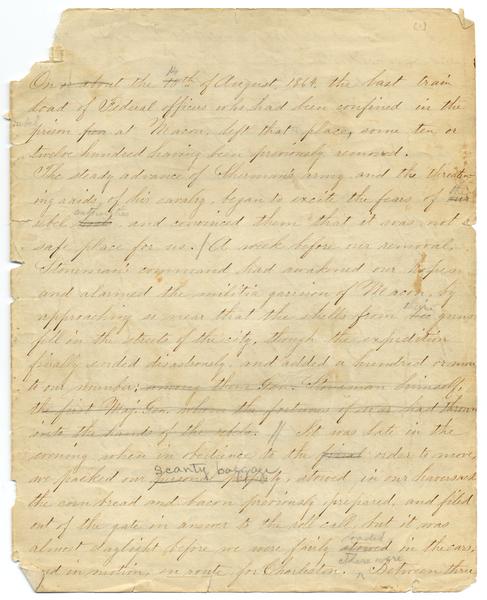 (1)
On or about the 14th of August, 1864, the last train
load of Federal officers who had been confined in the
prison pen at Macon, left that place, some ten or
twelve hundred having been previously removed.
The steady advance of Sherman's army, and the threaten-
ing raids, of his cavalry, began to excite the fears of
rebel authorities and convinced them that it was not a
safe place for us. / A week before our removal,
Stoneman's command had awakened our hopes
and alarmed the militia garrison of Macon, by
approaching so near that the shells from their guns
fell in the streets of the city, though the expedition
finally ended disastrously, and added a hundred or more
to our number; among them Gen. Stoneman himself,
the first Maj. Gen. whom the fortunes of war had thrown
into the hands of the rebels. // It was late in the
evening when in obedience to the order to move,
scanty baggage
we packed our stowed in our haversacks
the corn bread and bacon previously prepared, and filed
out of the gate in answer to the roll call, but it was
loaded
almost daylight before we were fairly stowed in the cars,
and in motion, en route for Charleston. There were Between three